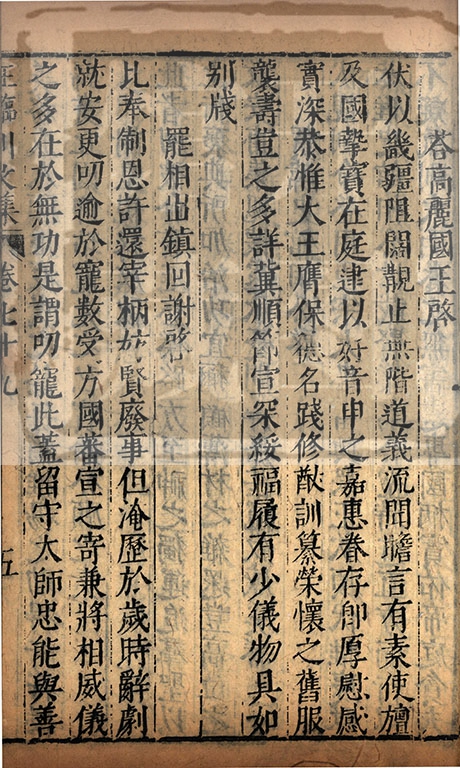 荅高麗國王啓
伏以畿疆阻闊覿止無階道義流聞瞻言有素使旜
及國摯寳在庭建以好音申之嘉惠眷存卽厚慰感
實深恭惟大王膺保徳名踐修猷訓纂榮懷之舊服
襲壽豈之多詳冀順節宣罙綏福履有少儀物具如
别牋
罷相出鎮回謝啓
比奉制恩許還宰柄妨賢廢事但淹歴於歲時辭劇
就安更叨逾於寵數受方國蕃宣之寄兼將相威儀
之多在於無功是謂叨寵此蓋留守太師忠能與善
王臨川文集 卷七十九 五